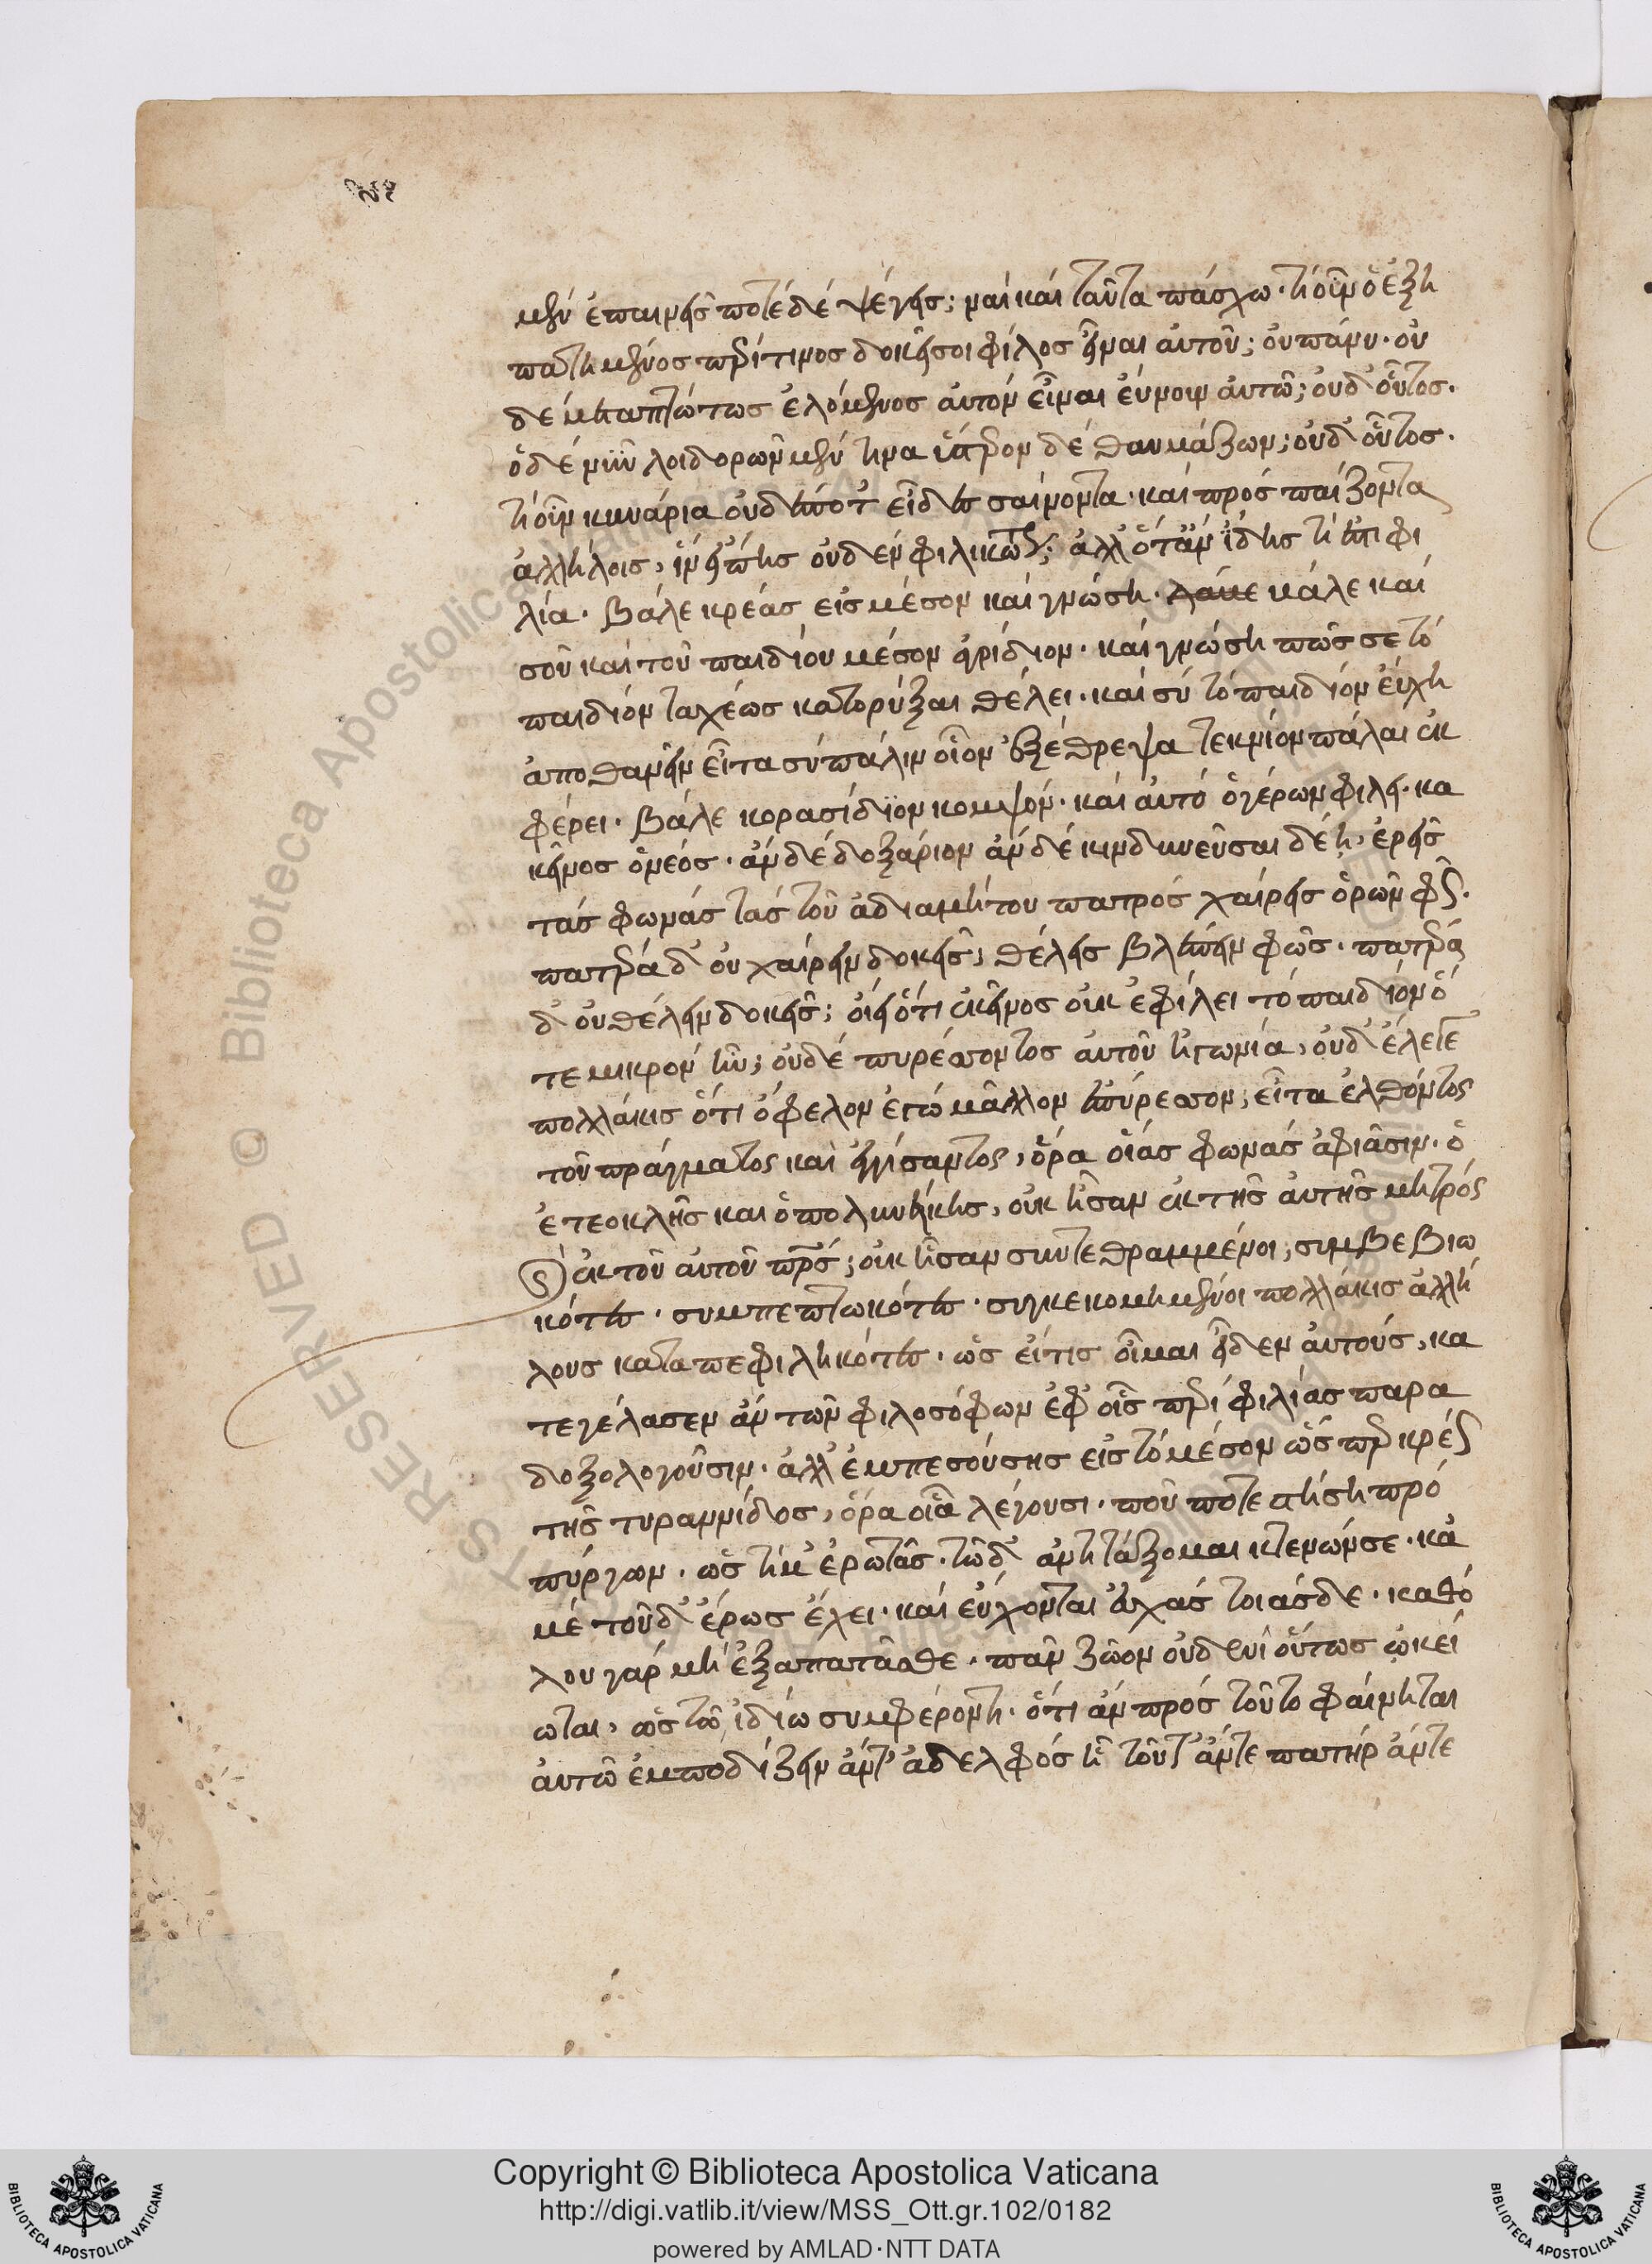 μὲν ἐπαινεῖς ποτὲ δὲ ψέγεις; ναὶ καὶ ταῦτα πάσχω. τί οὖν ὁ ἐξη
πατημένος περί τινος δοκεῖ σοι φίλος εἶναι αὐτοῦ; οὐ πάνυ. οὐ
δὲ μεταπτώτως ἑλόμενος αὐτὸν εἶναι εὔνουν αὐτῶ; οὐδ' οὗτος.
ὁ δὲ νῦν λοιδορῶν μέν τινα ὕστερον δὲ θαυμάζων; οὐδ' οὗτος.
τί οὖν κυνάρια οὐδέποτ' εἶδες σαίνοντα. καὶ προσπαίζοντα
ἀλλήλοις, ἵν' εἴπης οὐδὲν φιλικώτερον; ἀλλ' ὅταν ἴδης τί ἐστι φι
λία. βάλε κρέας εἰς μέσον καὶ γνώση. κάλε καὶ
σοῦ καὶ τοῦ παιδίου μέσον γρίδιον. καὶ γνώση πῶς σε τὸ
παιδίον ταχέως κατορύξαι θέλει. καὶ σὺ τὸ παιδίον εὔχη
ἀποθανεῖν εἶτα σὺ πάλιν οἷον ἐξέθρεψα τεκνίον πάλαι ἐκ
φέρει. βάλε κορασίδιον κομψόν. καὶ αὐτὸ ὁ γέρων φιλεῖ. κα
κεῖνος ὁ νέος. ἂν δὲ δοξάριον ἂν δὲ κινδυνεῦσαι δέη, ἐρεῖς
τὰς φωνὰς τὰς τοῦ ἀδμήτου πατρός χαίρεις ὁρῶν φῶς.
πατέρα δ' οὐ χαίρειν δοκεῖς; θέλεις βλέπειν φῶς. πατέρα
δ' οὐ θέλειν δοκεῖς; οἴει ὅτι ἐκεῖνος οὐκ ἐφίλει τὸ παιδίον ὅ
τε μικρὸν ἦν; οὐδὲ πυρέσσοντος αὐτοῦ ἠγωνία, οὐδ' ἔλεγε
πολλάκις ὅτι ὄφελον ἐγὼ μᾶλλον ἐπύρεσσον; εἶτα ἐλθόντος
τοῦ πράγματος καὶ ἐγγίσαντος, ὅρα οἵας φωνὰς ἀφιᾶσιν. ὁ
ἐτεοκλῆς καὶ ὁ πολυνείκης, οὐκ ἦσαν ἐκ τῆς αὐτῆς μητρὸς
καὶ ἐκ τοῦ αὐτοῦ πρς; οὐκ ἦσαν συντεθραμμένοι; συμβεβιω
κότες. συμπεπτωκότες. συγκεκοιμημένοι πολλάκις ἀλλή
λους καταπεφιληκότες. ὡς εἴ τις οἶμαι εἶδεν αὐτούς, κα
τεγέλασεν ἂν τῶν φιλοσόφων ἐφ' οἷς περὶ φιλίας παρα
δοξολογοῦσιν. ἀλλ' ἐμπεσούσης εἰς τὸ μέσον ὥσπερ κρέως
τῆς τυραννίδος, ὅρα οἷα λέγουσι. ποῦ ποτε στήση πρὸ
πύργων. ὡς τί μ' ἐρωτᾶς. τῶδ' ἀντιτάξομαι κτενῶν σε. κἀ
μὲ τοῦδ' ἔρως ἔχει. καὶ εὔχονται εὐχὰς τοιάσδε. καθό
λου γὰρ μὴ ἐξαπατᾶσθε. πᾶν ζῶον οὐδενὶ οὕτως ὠκεί
ωται, ὡς τῶ ἰδίω συμφέροντι. ὅ τι ἂν πρὸς τοῦτο φαίνηται
αὐτῶ ἐμποδίζειν ἄντ' ἀδελφὸς ἦ τοῦτ' ἄντε πατὴρ ἄντε
Copyright © Biblioteca Apostolica Vaticana
http://digi.vatlib.it/view/MSS_Ott.gr.102/0182
powered by AMLAD·NTT DATA